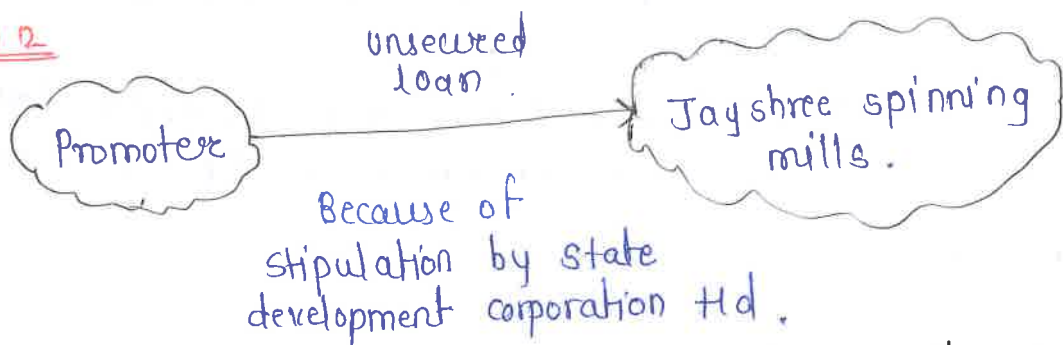 2
unsecured
loan.
Promoter
Jayshree spinning
mills.
Because of
stipulation by state
development corporation Htd.